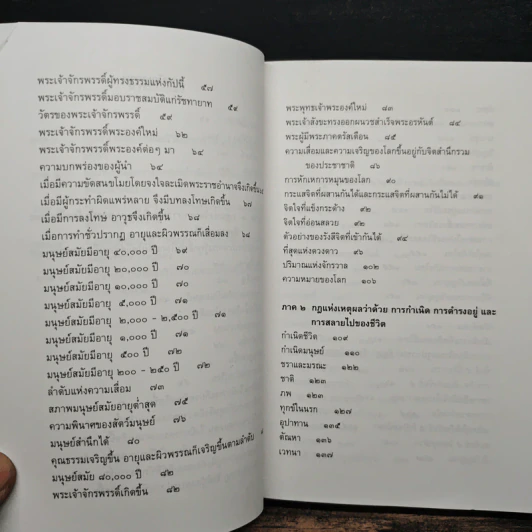 พระเจ้าจักรพรรดิ์ผู้ทรงธรรมแห่งกัปนี้ ๕๗
พระเจ้าจักรพรรดิ์มอบราชสมบัติแก่รัชทายาท ๕๙
วัตรของพระเจ้าจักรพรรดิ์ ๕๙
พระเจ้าจักรพรรดิ์พระองค์ใหม่ ๖๒
พระเจ้าจักรพรรดิ์พระองค์ต่อๆ มา ๖๔
ความบกพร่องของผู้นำ ๖๔
เมื่อมีความขัดสนขโมยโดยจงใจละเมิดพระราชอำนาจจึงเกิดขึ้น
เมื่อมีผู้กระทำผิดแพร่หลาย จึงมีบทลงโทษเกิดขึ้น ๖๗
เมื่อมีการลงโทษ อาวุธจึงเกิดขึ้น ๖๘
เมื่อการทำชั่วปรากฏ อายุและผิวพรรณก็เสื่อมลง ๖๘
มนุษย์สมัยมีอายุ ๔๐,๐๐๐ ปี ๖๙
มนุษย์สมัยมีอายุ ๒๐,๐๐๐ ปี ๗๐
มนุษย์สมัยมีอายุ ๑๐,๐๐๐ ปี ๗๐
มนุษย์สมัยมีอายุ ๕,๐๐๐ ปี ๗๑
มนุษย์สมัยมีอายุ ๒,๐๐๐ - ๒,๕๐๐ ปี ๗๑
มนุษย์สมัยมีอายุ ๑,๐๐๐ ปี ๗๑
มนุษย์สมัยมีอายุ ๕๐๐ ปี ๗๒
มนุษย์สมัยมีอายุ ๒๐๐ - ๒๕๐ ปี ๗๒
ลำดับแห่งความเสื่อม ๗๓
สภาพมนุษย์สมัยอายุต่ำสุด ๗๕
ความพินาศของสัตว์มนุษย์ ๗๖
มนุษย์สำนึกได้ ๘๐
คุณธรรมเจริญขึ้น อายุและผิวพรรณก็เจริญขึ้นตามลำดับ
มนุษย์สมัย ๘๐,๐๐๐ ปี ๘๒
พระเจ้าจักรพรรดิ์เกิดขึ้น ๘๒
พระพุทธเจ้าพระองค์ใหม่ ๘๓
พระเจ้าสังขะทรงออกผนวชสำเร็จพระอรหันต์ ๘๔
พระผู้มีพระภาคตรัสเตือน ๘๕
ความเสื่อมและความเจริญของโลกขึ้นอยู่กับจิตสำนึกรวม
ของประชาชาติ ๘๖
การหักเหการหมุนของโลก ๙๐
กระแสจิตที่ผสานกันได้และกระแสจิตที่ผสานกันไม่ได้ ๙๑
จิตใจที่แข็งกระด้าง ๙๒
จิตใจที่อ่อนสลวย ๙๒
ตัวอย่างของรังสีจิตที่เข้ากันได้ ๙๔
ที่สุดแห่งดวงดาว ๙๖
ปริมาณแห่งจักรวาล ๑๐๒
ความหมายของโลก ๑๐๖
ภาค ๒ กฎแห่งเหตุผลว่าด้วย การกำเนิด การดำรงอยู่ และ
การสลายไปของชีวิต
กำเนิดชีวิต ๑๐๙
กำเนิดมนุษย์ ๑๑๐
ชราและมรณะ ๑๒๒
ชาติ ๑๒๓
ภพ ๑๒๓
ทุกข์ในนรก ๑๒๗
อุปาทาน ๑๓๕
ตัณหา ๑๓๖
เวทนา ๑๓๗